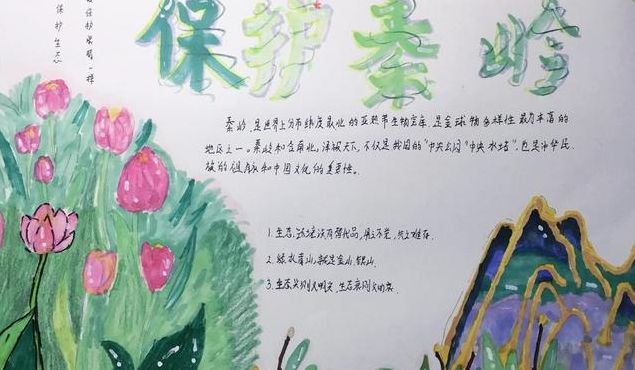 保护秦岭
保护眼睛一样
保护生态
秦岭,是世界上分布纬度最北的亚热带生物宝库,是全球物多样性最为丰富的
地区之一。秦岭和合南北,泽被天下,不仅是我国的"中央公园""中央水塔",也是中华民
族的祖脉和中国文化的重要性。
1.生态环境没有替代品,用之不觉,失之难存.
2.绿水青山,就是金山,银山.
3.生态兴则文明兴,生态衰则文明衰.